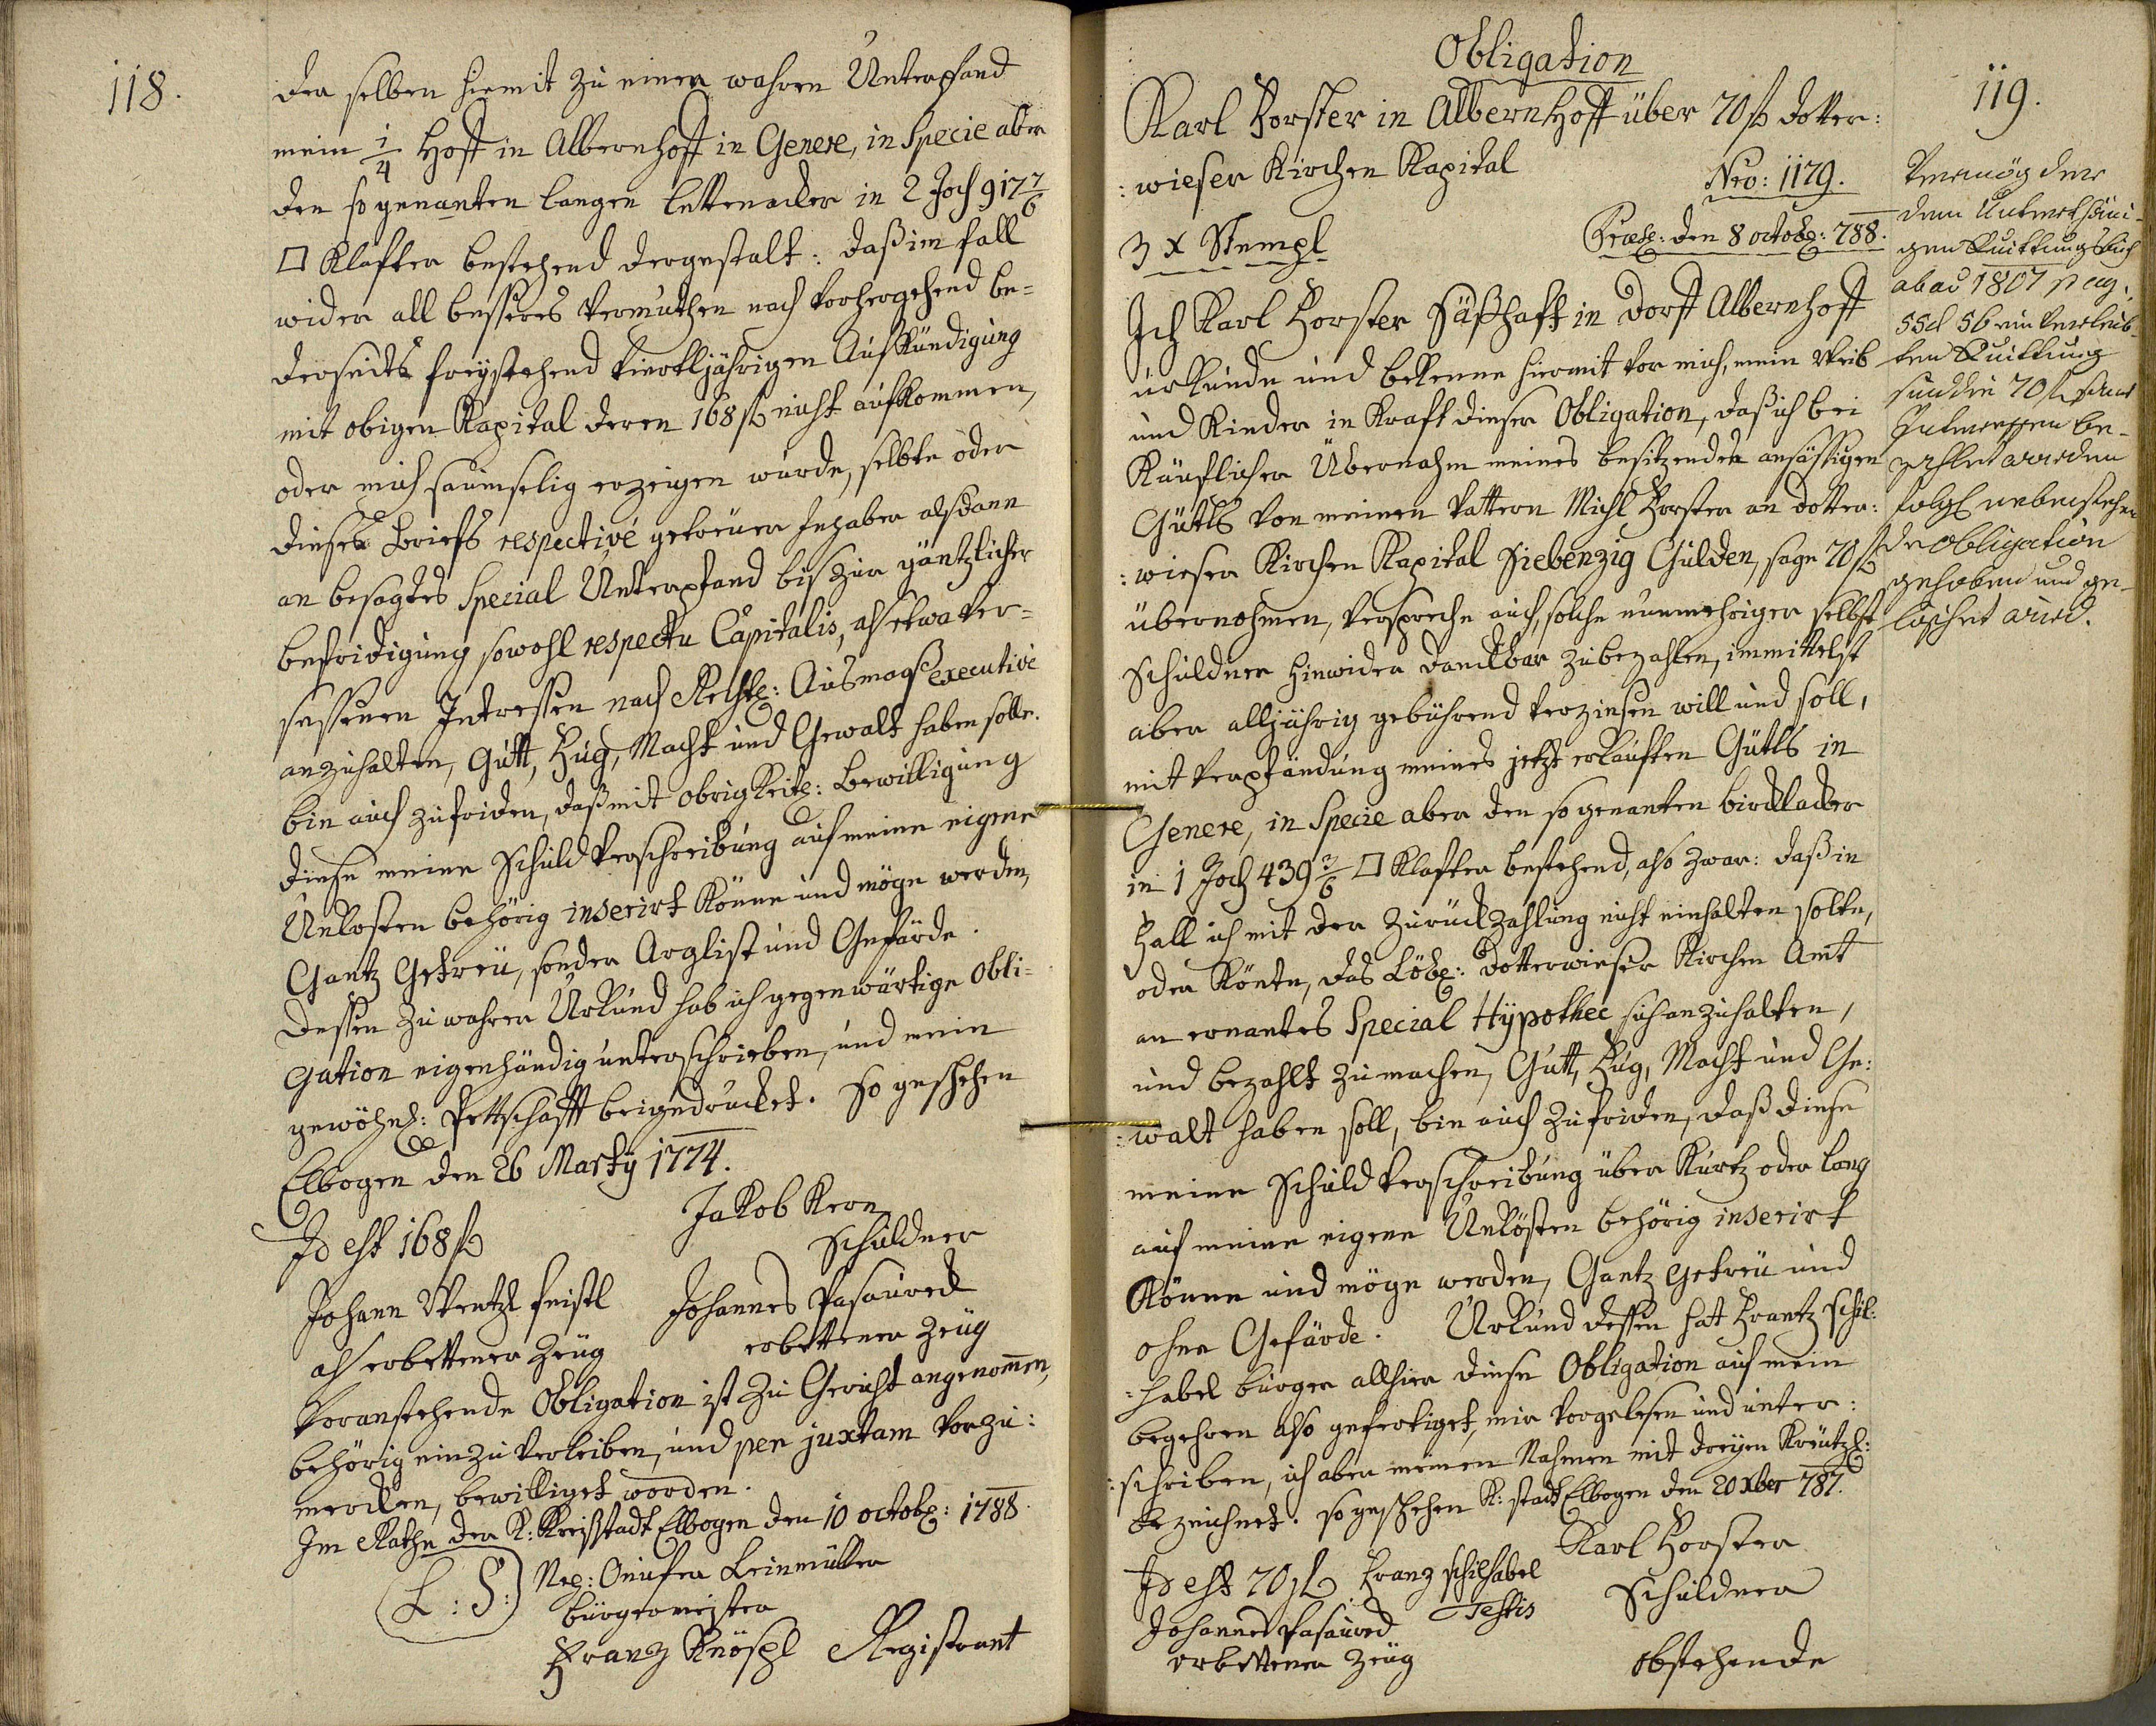 118.
der selben hiemit zu einen wahren Unterpfand
mein 1/4 Hoff in Albernhoff in Genere, in Specie aber
den so genanten langen lettenacker in 2 Joch 917 7/6
□ Klafter bestehend dergestalt: daß im fall
wider all besseres Vermuthen nach vorhergehend be=
derseits freystehend Viertljährigen Aufkündigung
mit obigen Kapital deren 168 fl nicht aufkommen,
oder mich saumselig erzeigen wurde, selbte oder
dieses Briefs respectivé getreuer Inhaber alsdann
an besagtes Special Unterpfand bis zur gäntzlicher
befridigung sowohl respectu Capitalis, als etwa ver=
sessenen Interessen nach Rechtl: Ausmaß executivé
anzuhalten, Gutt, Fug, Macht und Gewalt haben solle.
bin auch zufriden, daß mit obrigkeitl: Bewilligung
diese meine Schuld Verschreibung auf meine eigene
Unkosten behörig inserirt könne und möge werden,
Gantz Getreü, sonder Arglist und Gefärde.
dessen zu wahrer Urkund hab ich gegenwärtige Obli=
gation eigenhändig unterschrieben, und mein
gewöhnl: Pettschafft beigedrucket. So geschehen
Elbogen den 26 Marty 1774.
Jakob Kern
Id est 168 fl
Schuldner
Johann Wentzl feistl Johannes Pasaured
als erbettener Zeug erbettener Zeug
Voranstehende Obligation ist zu Gericht angenom̄en,
behörig einzuverleiben, und per juxtam vorzu:
merken, bewilliget worden.
Im Rathe der K: Kreißstadt Elbogen den 10 octob: 1788.
(L: S:) Onufer Leinmüller
bürgermeister
Franz Knöspl Registrant
119.
Obligation
Karl Forster in Albernhoff über 70 fl dotter:
:wieser Kirchen Kapital
Nro: 1179.
3 x Stempl
Præs: den 8 octob: 788.
Ich Karl Forster Säßhafft in dorff Albernhoff
urkunde und bekenne hiermit vor mich, mein Weib
und Kinder in Kraft dieser Obligation, daß ich bei
Käuflicher Übernahm meines besitzenden ansässigen
Gütls von meinen Vattern Michl Forster an dotter:
:wieser Kirchen Kapital Siebenzig Gulden, sage 70 fl
übernohmen, verspreche auch, solche nunmehriger selbst
Schuldner hinwider danckbar zubezahlen, immittelst
aber alljährig gebührend verzinsen will und soll,
mit Verpfändung meines jetzt erkauften Gütls in
Genere, in Specie aber den so genanten bircklacker
in 1 Joch 439 3/6 □ Klafter bestehend, also zwar: daß in
Fall ich mit der Zurückzahlung nicht einhalten solte,
oder könte, das Löbl: dotterwieser Kirchen Amt
an ernantes Special Hÿpothec sich anzuhalten,
und bezahlt zu machen, Gutt, Fug, Macht und Ge:
:walt haben soll, bin auch zufriden, daß diese
meine Schuld Verschreibung über Kurtz oder lang
auf meine eigene Unkösten behörig inserirt
könne und möge werden, Gantz getreü und
ohne Gefärde. Urkund dessen hat Frantz Schil:
:habel burger allhier diese Obligation auf mein
begehren also gefertiget, mir vorgelesen und unter:
:schrieben, ich aber meinen Nahmen mit dreyen Kreutzl:
bezeichnet. so geschehen K: stadt Elbogen den 20 Xber 787.
Karl Forster
Id est 70 fl Franz Schilhabel
Schuldner
Johannes Pasaured Testis
erbettener Zeug
obstehende
Vermög der
dem Unterthäni-
gen Quittungsbuch
ab ao 1807 pag.
55 et 56 einverleib-
ten Quittung
sind die 70 fl samt
Interessen be-
zahlet worden
folgl nebenstehen
de Obligation
gehoben und ge-
löschet wird.